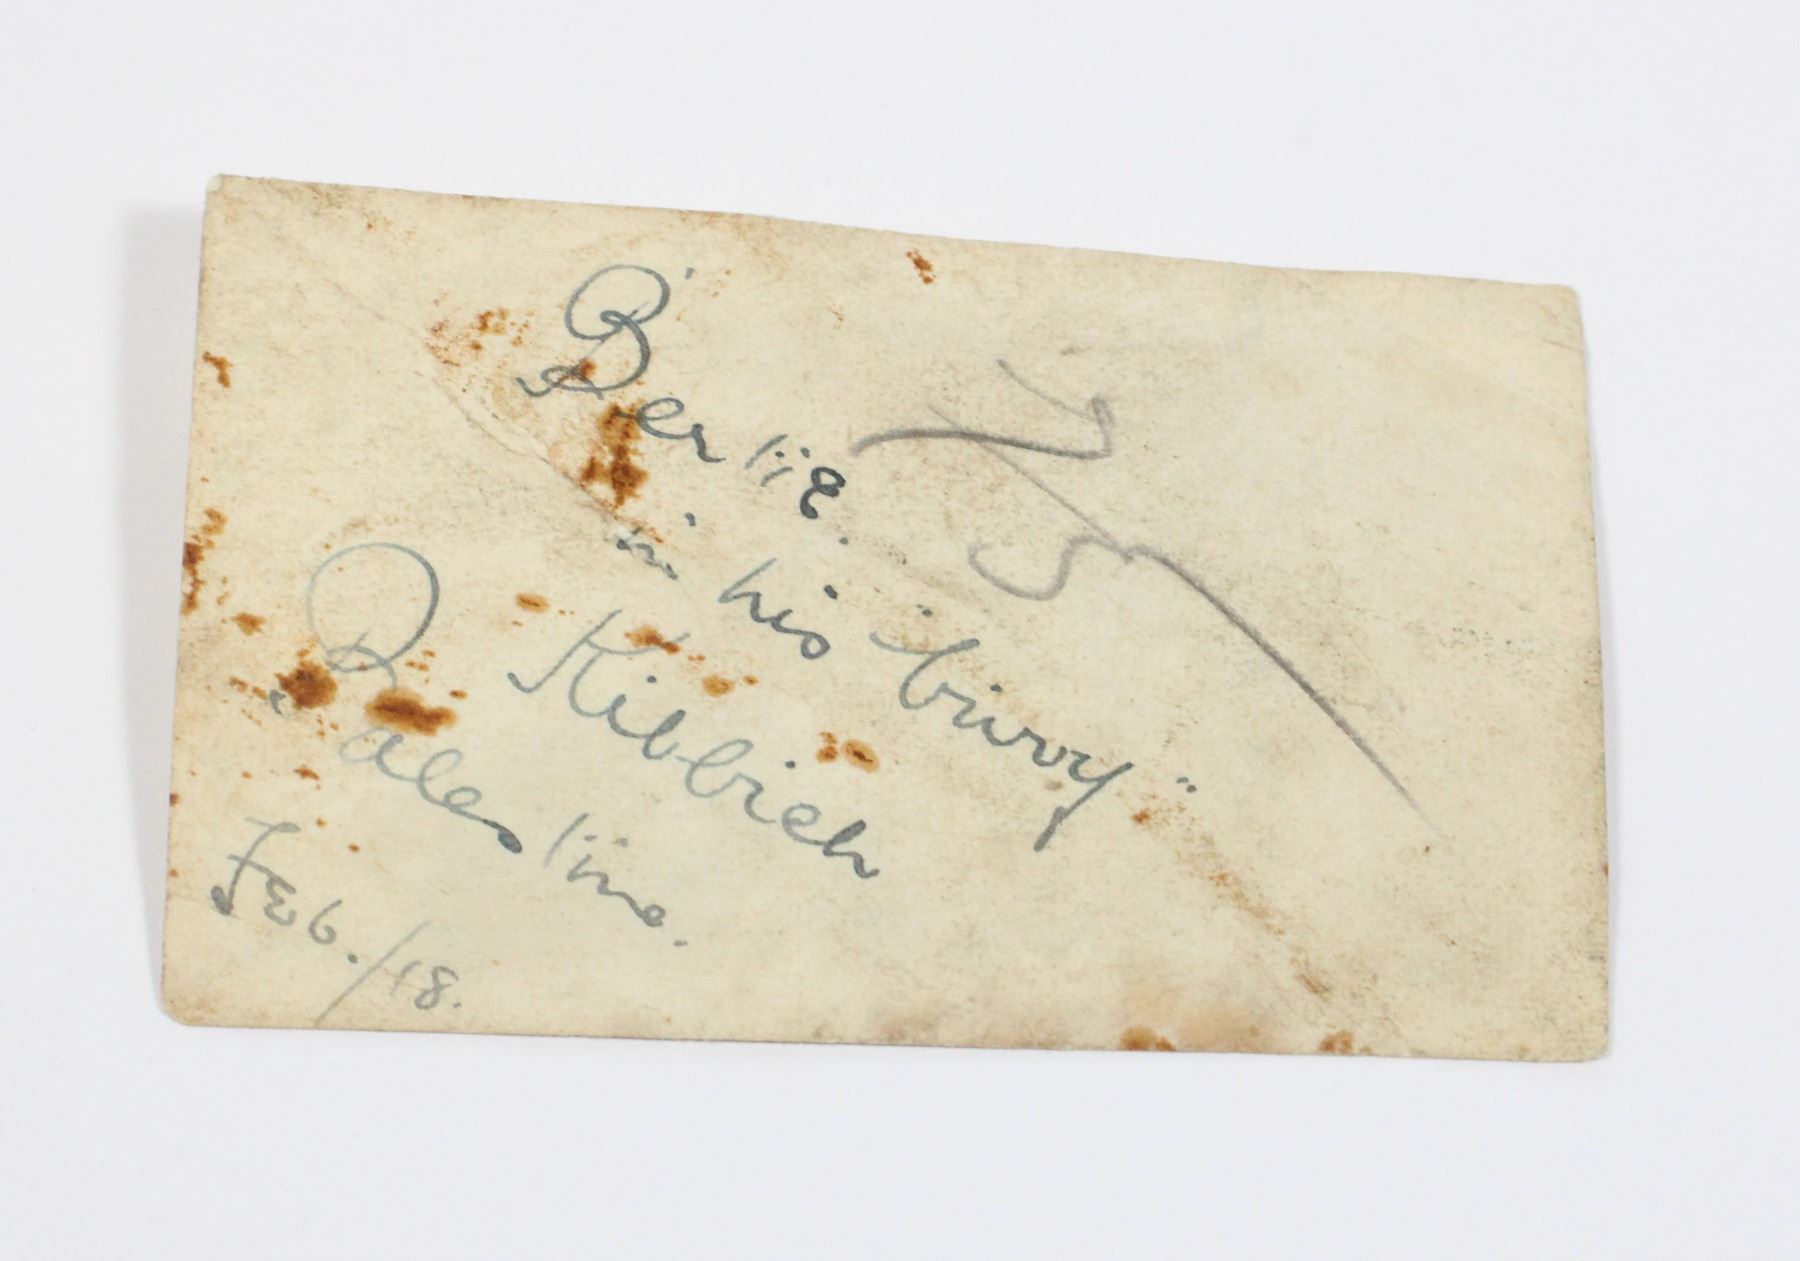 Bertie.
in his "bivvy"
Kibbieh
Palestine.
Feb./18.